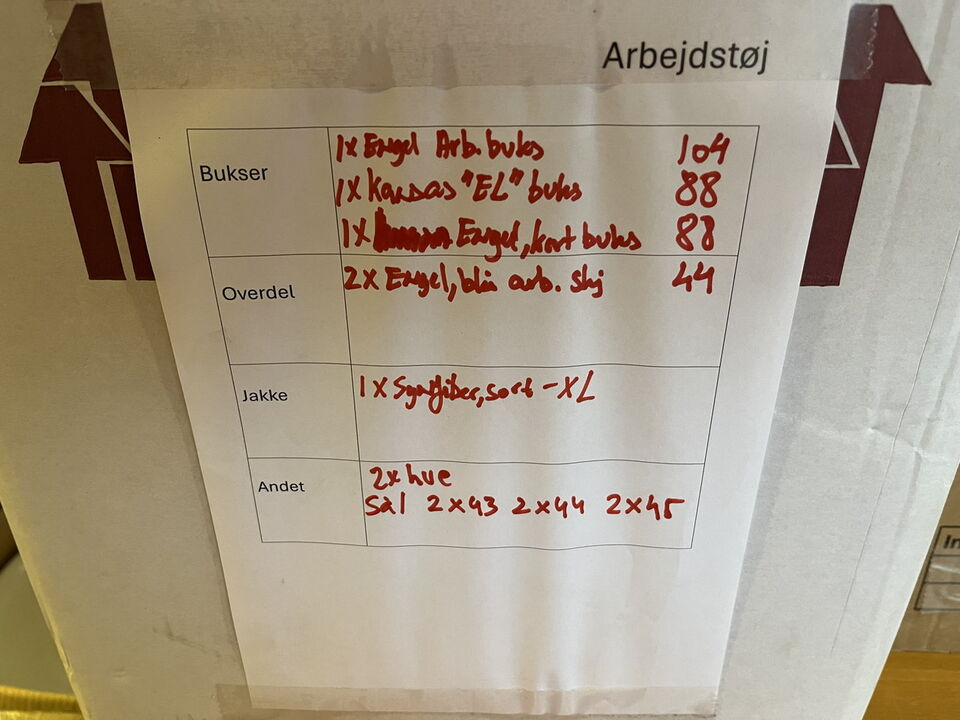 Arbejdstøj
Bukser
1x Engel Arb. buks 104
1x Kansas "EL" buks 88
1x Engel, kort buks 88
Overdel
2x Engel, blå arb. skj 44
Jakke
1x Synfiber, sort - XL
Andet
2x hue
Sål 2x43 2x44 2x45
In